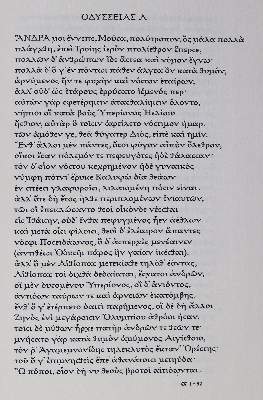 ΟΔΥΣΣΕΙΑΣ Α
ἌΝΔΡΑ μοι ἔννεπε, Μοῦσα, πολύτροπον, ὃς μάλα πολλὰ
πλάγχθη, ἐπεὶ Τροίης ἱερὸν πτολίεθρον ἔπερσε,
πολλῶν δ' ἀνθρώπων ἴδεν ἄστεα καὶ νόον ἔγνω,
πολλὰ δ' ὅ γ' ἐν πόντῳ πάθεν ἄλγεα ὃν κατὰ θυμόν,
ἀρνύμενος ἥν τε ψυχὴν καὶ νόστον ἑταίρων.
ἀλλ' οὐδ' ὧς ἑτάρους ἐρρύσατο ἱέμενός περ·
αὐτῶν γὰρ σφετέρῃσιν ἀτασθαλίῃσιν ὄλοντο,
νήπιοι οἳ κατὰ βοῦς Ὑπερίονος Ἠελίοιο
ἤσθιον, αὐτὰρ ὁ τοῖσιν ἀφείλετο νόστιμον ἦμαρ.
τῶν ἁμόθεν γε, θεὰ θύγατερ Διός, εἰπὲ καὶ ἡμῖν.
Ἔνθ' ἄλλοι μὲν πάντες, ὅσοι φύγον αἰπὺν ὄλεθρον,
οἴκοι ἔσαν πόλεμόν τε πεφευγότες ἠδὲ θάλασσαν·
τὸν δ' οἶον νόστου κεχρημένον ἠδὲ γυναικὸς
νύμφη πότνι' ἔρυκε Καλυψὼ δῖα θεάων
ἐν σπέσσι γλαφυροῖσι, λιλαιομένη πόσιν εἶναι.
ἀλλ' ὅτε δὴ ἔτος ἦλθε περιπλομένων ἐνιαυτῶν,
τῷ οἱ ἐπεκλώσαντο θεοὶ οἶκόνδε νέεσθαι
εἰς Ἰθάκην, οὐδ' ἔνθα πεφυγμένος ἦεν ἀέθλων
καὶ μετὰ οἷσι φίλοισι, θεοὶ δ' ἐλέαιρον ἅπαντες
νόσφι Ποσειδάωνος, ὁ δ' ἀσπερχὲς μενέαινεν
ἀντιθέῳ Ὀδυσῆι πάρος ἣν γαῖαν ἱκέσθαι.
ἀλλ' ὁ μὲν Αἰθίοπας μετεκίαθε τηλόθ' ἐόντας,
Αἰθίοπας τοὶ διχθὰ δεδαίαται, ἔσχατοι ἀνδρῶν,
οἱ μὲν δυσομένου Ὑπερίονος, οἱ δ' ἀνιόντος,
ἀντιόων ταύρων τε καὶ ἀρνειῶν ἑκατόμβης.
ἔνθ' ὅ γ' ἐτέρπετο δαιτὶ παρήμενος, οἱ δὲ δὴ ἄλλοι
Ζηνὸς ἐνὶ μεγάροισιν Ὀλυμπίου ἀθρόοι ἦσαν.
τοῖσι δὲ μύθων ἦρχε πατὴρ ἀνδρῶν τε θεῶν τε·
μνήσατο γὰρ κατὰ θυμὸν ἀμύμονος Αἰγίσθοιο,
τόν ῥ' Ἀγαμεμνονίδης τηλεκλυτὸς ἔκταν' Ὀρέστης·
τοῦ ὅ γ' ἐπιμνησθεὶς ἔπε' ἀθανάτοισι μετηύδα·
Ὢ πόποι, οἷον δή νυ θεοὺς βροτοὶ αἰτιόωνται.
α 1-32